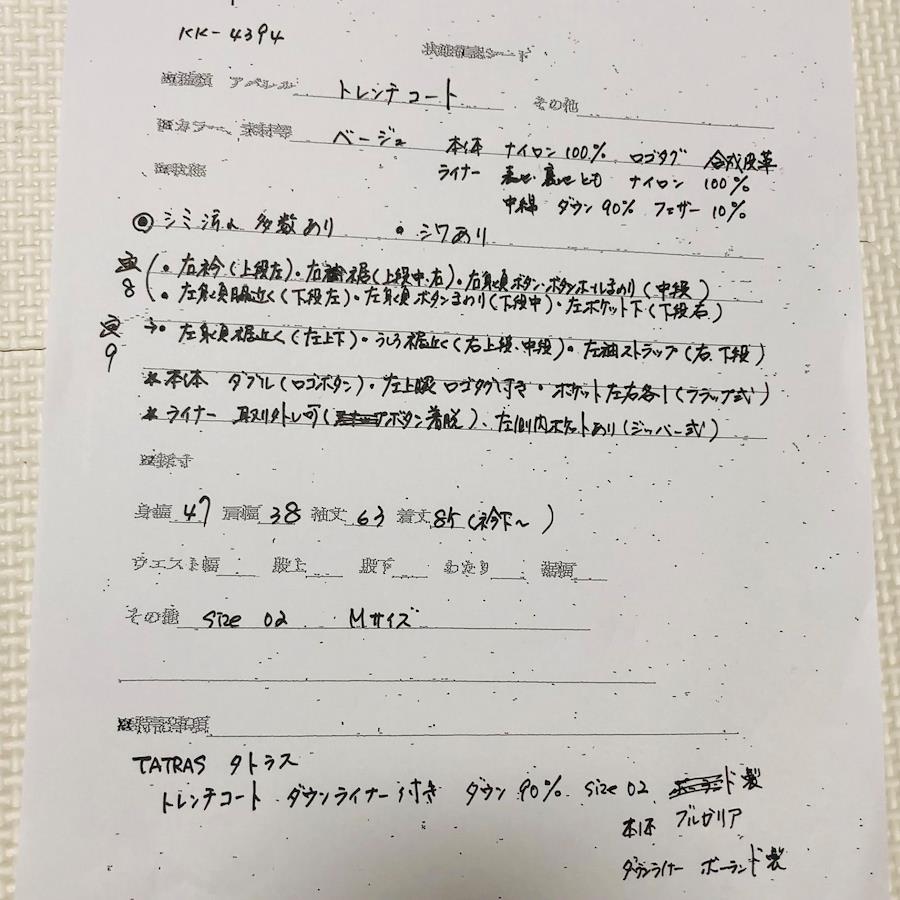 KK-4394
状態確認シート
■種類 アパレル トレンチコート その他
■カラー、素材等 ベージュ 本体 ナイロン 100% ロゴタグ 合成皮革
ライナー 表地・裏地とも ナイロン 100%
■状態
中綿 ダウン 90% フェザー 10%
◎ シミ汚れ 多数あり • シワあり
8 • 右衿(上段左)・右裾(上段中、右)・右身頃ボタン・ボタンホールまわり(中段)
• 左身頃脇近く(下段左)・左身頃ボタンまわり(下段中)・左ポケット下(下段右)
9 → • 左身頃裾近く(左上下)・うしろ裾近く(右上段、中段)・左袖ストラップ(右、下段)
* 本体 ダブル(ロゴボタン)・左上腕 ロゴタグ付き・ポケット左右各1(フラップ式)
* ライナー 取りタトレ可(ボタン着脱)、左側内ポケットあり(ジッパー式)
■採寸
身幅 47 肩幅 38 袖丈 63 着丈 85(衿下~)
ウエスト幅 股上 股下 わたり 裾幅
その他 size 02 Mサイズ
■特記事項
TATRAS タトラス
トレンチコート ダウンライナー付き ダウン 90% size 02 ド製
本体 ブルガリア
ダウンライナー ポーランド製